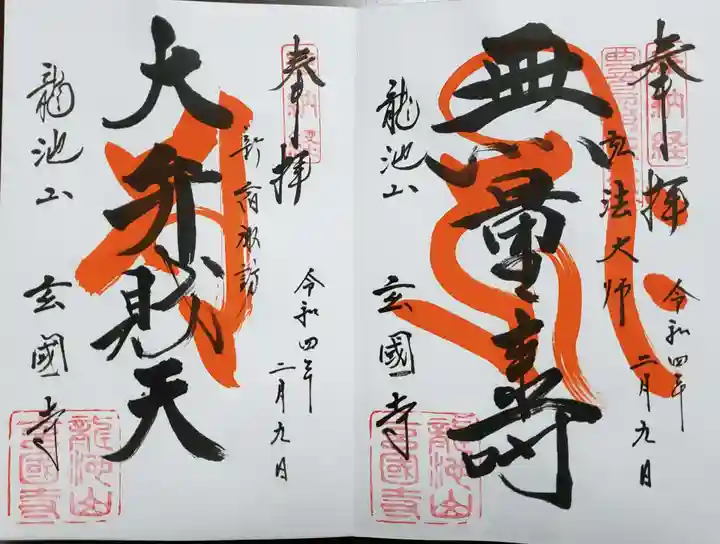 奉拝
豊島八十八ヶ所
弘法大師
令和四年
二月九日
無量壽
龍池山
玄國寺
龍池山
玄國寺
奉拝
新宿諏訪
令和四年
二月九日
大弁財天
龍池山
玄國寺
龍池山
玄國寺